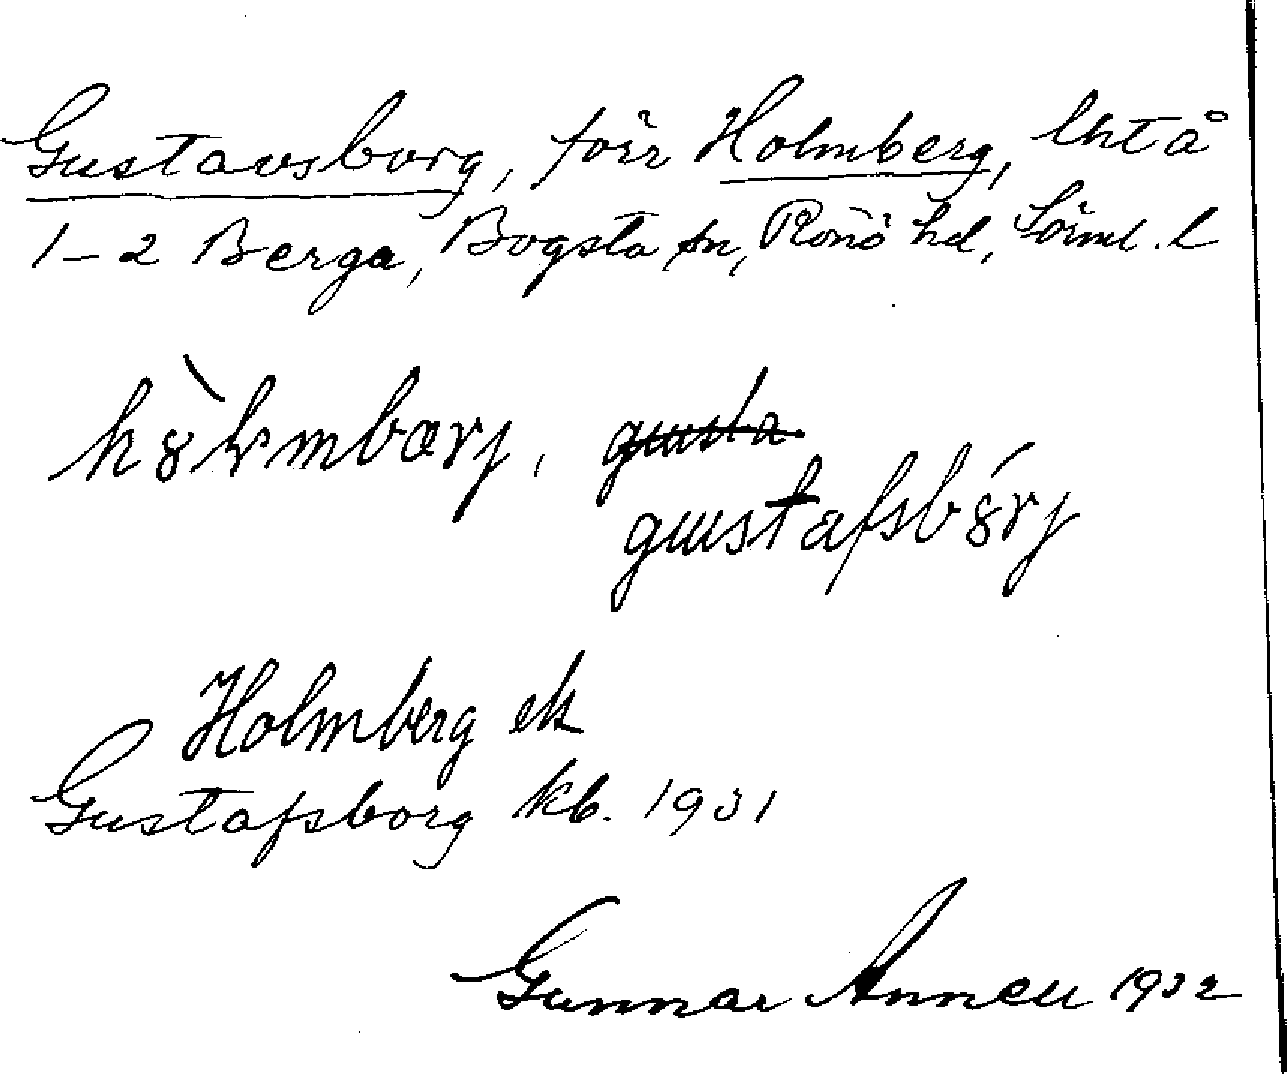 Gustavsborg, förr Holmberg, lht å
1-2 Berga, Bogsta sn, Rönö hd, Sörml. l
Holmberg ek
Gustafsborg kb. 1931
Gunnar Annell 1932